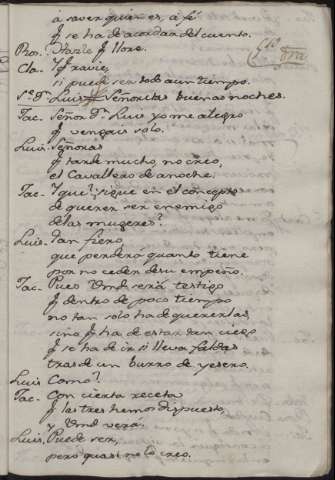 á saver quien es, á fé
q̃ se ha de acordar del cuento.
Ros. Darle q̃ llore.
Cla. Y q̃ ravie,
si puede ser todo a un tiempo.
Sr. Dn. Luis Señoritas buenas noches.
Jac. Señor Dn. Luis yo me alegro
q̃ vengais solo.
Luis. Señoras
q̃ tarde mucho, no creo,
el Cavallero de anoche.
Jac. Y que? sigue en el concepto
de querer ser enemigo
de las mugeres?
Luis. Tan fiero,
que perderá quanto tiene
por no ceder de su empeño.
Jac. Pues Vmd. será testigo
q̃ dentro de poco tiempo
no tan solo ha de quererlas
sino q̃ ha de estar tan ciego
q̃ se ha de ir si lleva faldas
tras de un burro de yesero.
Luis Como?
Jac. Con cierta receta
q̃ las tres hemos dispuesto,
y Vmd. verá.
Luis. Puede ser,
pero quasi no lo creo.